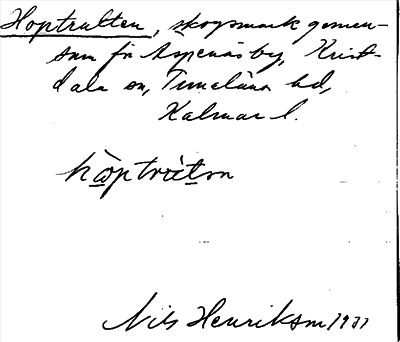 Hoptrutten, skogsmark gemen-
sam för Aspenäs by, Krist-
dala sn, Tunaläns hd,
Kalmar l.
hòptrùtən
Nils Henrikson 1931